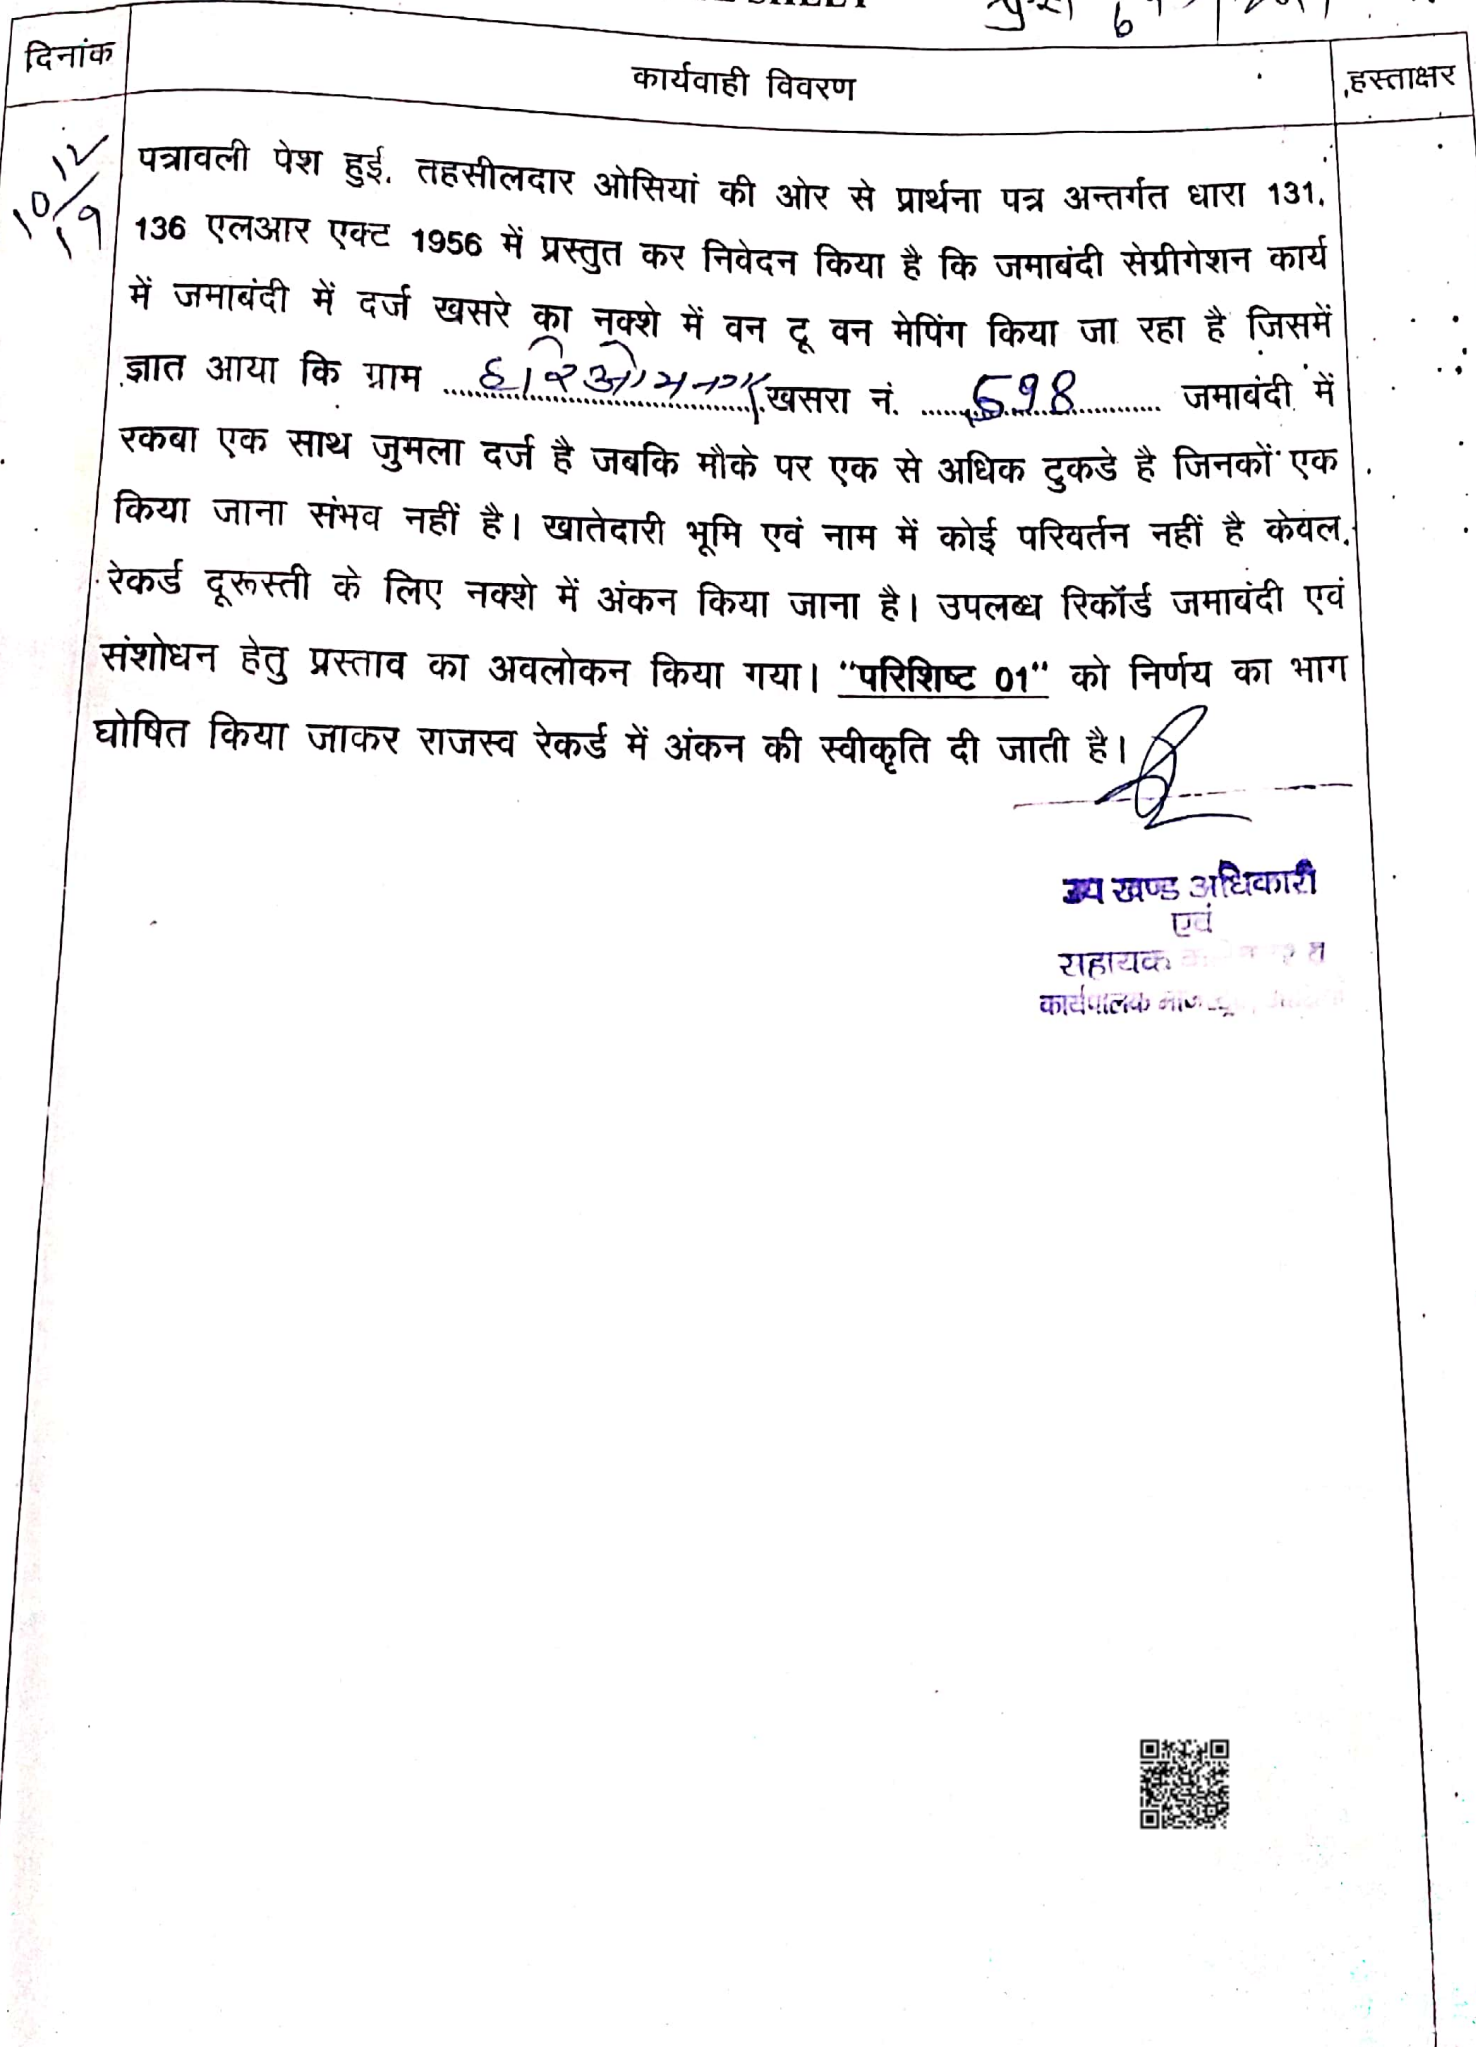 SHEET
दिनांक
कार्यवाही विवरण
हस्ताक्षर
10/12/19
पत्रावली पेश हुई. तहसीलदार ओसियां की ओर से प्रार्थना पत्र अन्तर्गत धारा 131,
136 एलआर एक्ट 1956 में प्रस्तुत कर निवेदन किया है कि जमाबंदी सेग्रीगेशन कार्य
में जमाबंदी में दर्ज खसरे का नक्शे में वन टू वन मेपिंग किया जा रहा है जिसमें
ज्ञात आया कि ग्राम हरिओमनगर खसरा नं. 598 जमाबंदी में
रकबा एक साथ जुमला दर्ज है जबकि मौके पर एक से अधिक टुकडे है जिनकों एक
किया जाना संभव नहीं है। खातेदारी भूमि एवं नाम में कोई परिवर्तन नहीं है केवल
रेकर्ड दूरूस्ती के लिए नक्शे में अंकन किया जाना है। उपलब्ध रिकॉर्ड जमाबंदी एवं
संशोधन हेतु प्रस्ताव का अवलोकन किया गया। "परिशिष्ट 01" को निर्णय का भाग
घोषित किया जाकर राजस्व रेकर्ड में अंकन की स्वीकृति दी जाती है।
उप खण्ड अधिकारी
एवं
सहायक
कार्यपालक